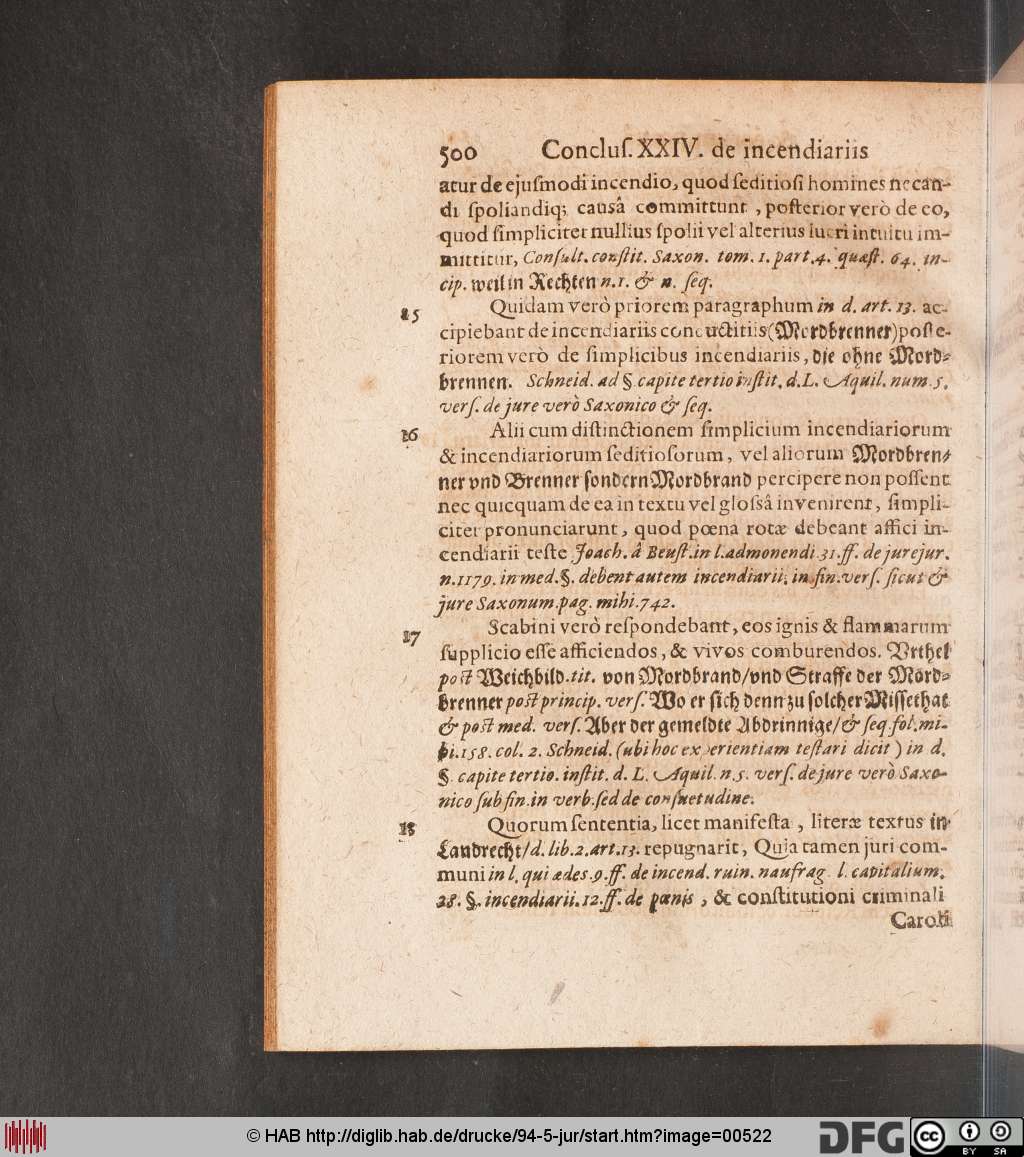 500 Concluſ. XXIV. de incendiariis
atur de ejuſmodi incendio, quod ſeditioſi homines necan-
di ſpoliandiq; causâ committunt, poſterior verò de eo,
quod ſimpliciter nullius ſpolii vel alterius lucri intuitu im-
mittitur, Conſult. conſtit. Saxon. tom. 1. part. 4. quæſt. 64. in-
cip. weil in Rechten n. 1. & n. ſeq.
15 Quidam verò priorem paragraphum in d. art. 13. ac-
cipiebant de incendiariis conductitiis (Mordbrenner) poſte-
riorem verò de ſimplicibus incendiariis, die ohne Mord-
brennen. Schneid. ad §. capite tertio inſtit. d. L. Aquil. num. 5.
verſ. de jure verò Saxonico & ſeq.
16 Alii cum diſtinctionem ſimplicium incendiariorum
& incendiariorum ſeditioſorum, vel aliorum Mordbren-
ner vnd Brenner ſondern Mordbrand percipere non poſſent
nec quicquam de ea in textu vel gloſsâ invenirent, ſimpli-
citer pronunciarunt, quod pœna rotæ debeant affici in-
cendiarii teſte Joach. â Beuſt. in l. admonendi. 31. ff. de jurejur.
n. 1179. in med. §. debent autem incendiarii. in fin. verſ. ſicut &
jure Saxonum. pag. mihi. 742.
17 Scabini verò reſpondebant, eos ignis & flammarum
ſupplicio eſſe afficiendos, & vivos comburendos. Vrthel
post Weichbild. tit. von Mordbrand/ vnd Straffe der Mord-
brenner post princip. verſ. Wo er ſich denn zu ſolcher Miſſethat
& post med. verſ. Aber der gemeldte Abdrinnige/ & ſeq. fol. mi-
hi. 158. col. 2. Schneid. (ubi hoc experientiam teſtari dicit) in d.
§. capite tertio. inſtit. d. L. Aquil. n. 5. verſ. de jure verò Saxo-
nico ſub fin. in verb. ſed de conſuetudine.
18 Quorum ſententia, licet manifeſta, literæ textus in
Landrecht/ d. lib. 2. art. 13. repugnarit, Quia tamen juri com-
muni in l. qui ædes. 9. ff. de incend. ruin. naufrag. l. capitalium.
28. §. incendiarii. 12. ff. de pœnis, & conſtitutioni criminali
Caroli
© HAB http://diglib.hab.de/drucke/94-5-jur/start.htm?image=00522
DFG
cc BY SA